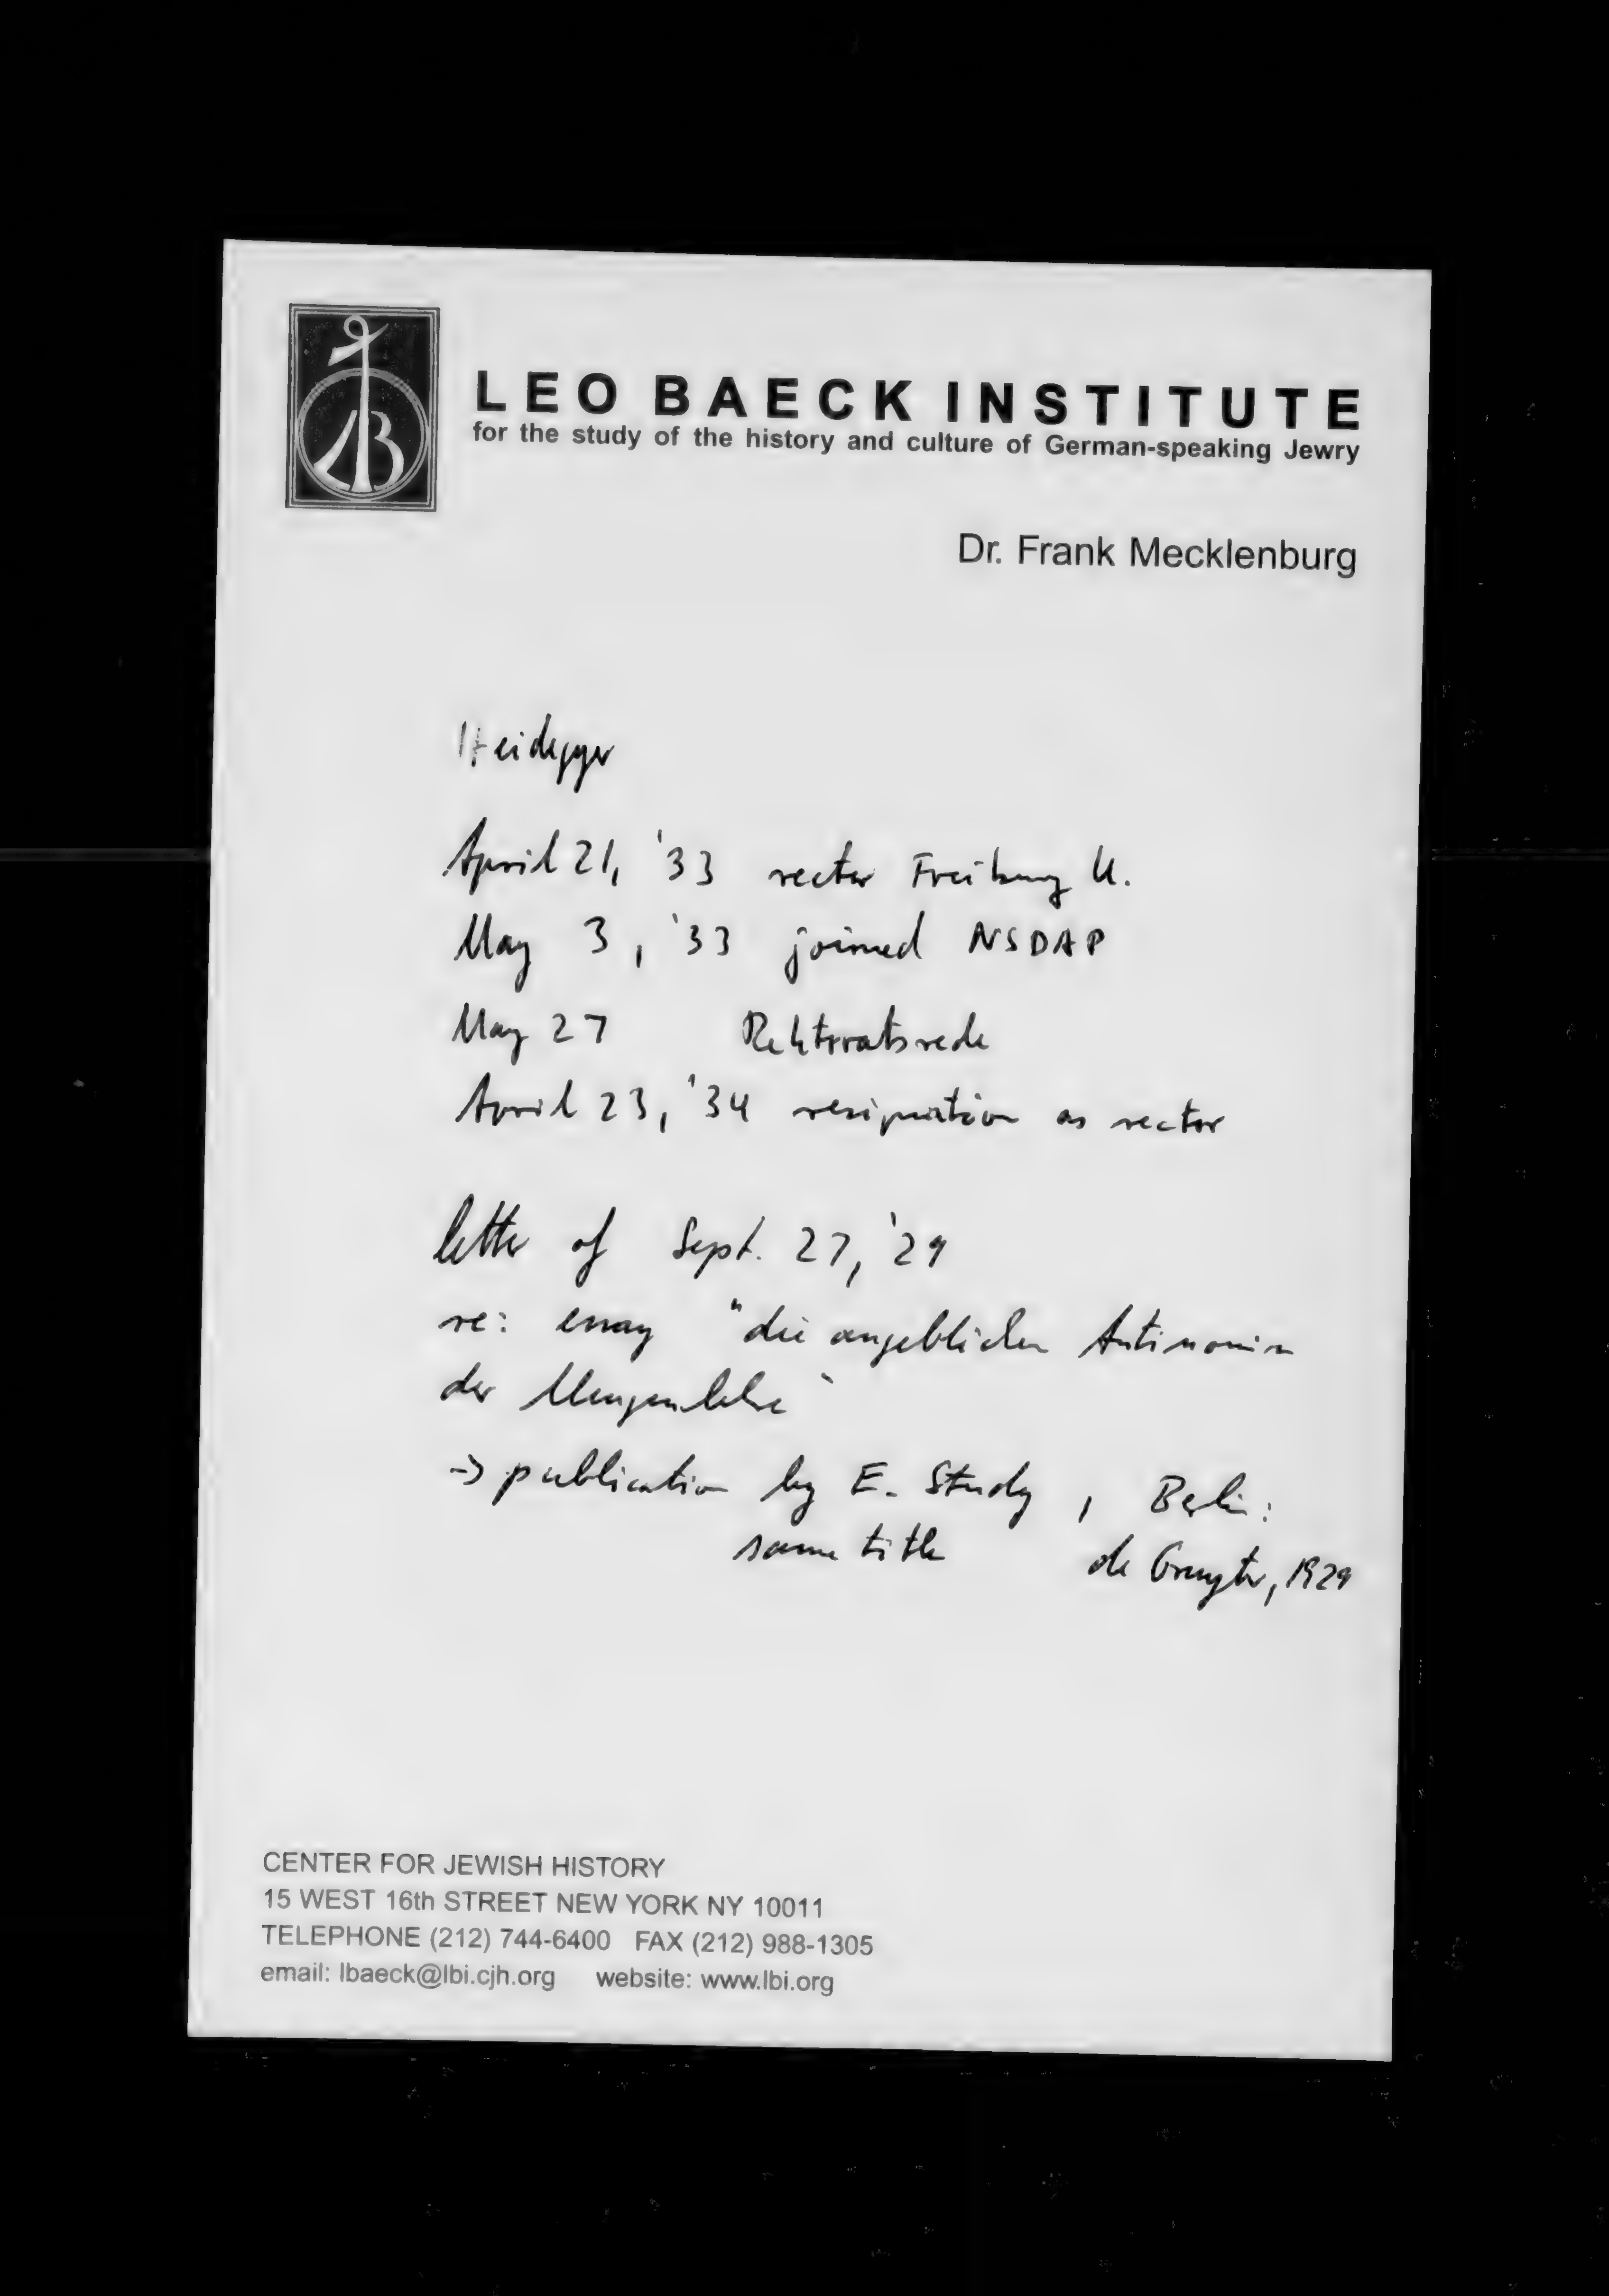 LB
LEO BAECK INSTITUTE
for the study of the history and culture of German-speaking Jewry
Dr. Frank Mecklenburg
Heidegger
April 21, '33 rector Freiburg U.
May 3, '33 joined NSDAP
May 27 Rektoratsrede
April 23, '34 resignation as rector
letter of Sept. 27, '29
re: essay "die angeblichen Antinomien
der Mengenlehre"
-> publication by E. Study, Berlin:
same title de Gruyter, 1929
CENTER FOR JEWISH HISTORY
15 WEST 16th STREET NEW YORK NY 10011
TELEPHONE (212) 744-6400 FAX (212) 988-1305
email: lbaeck@lbi.cjh.org website: www.lbi.org